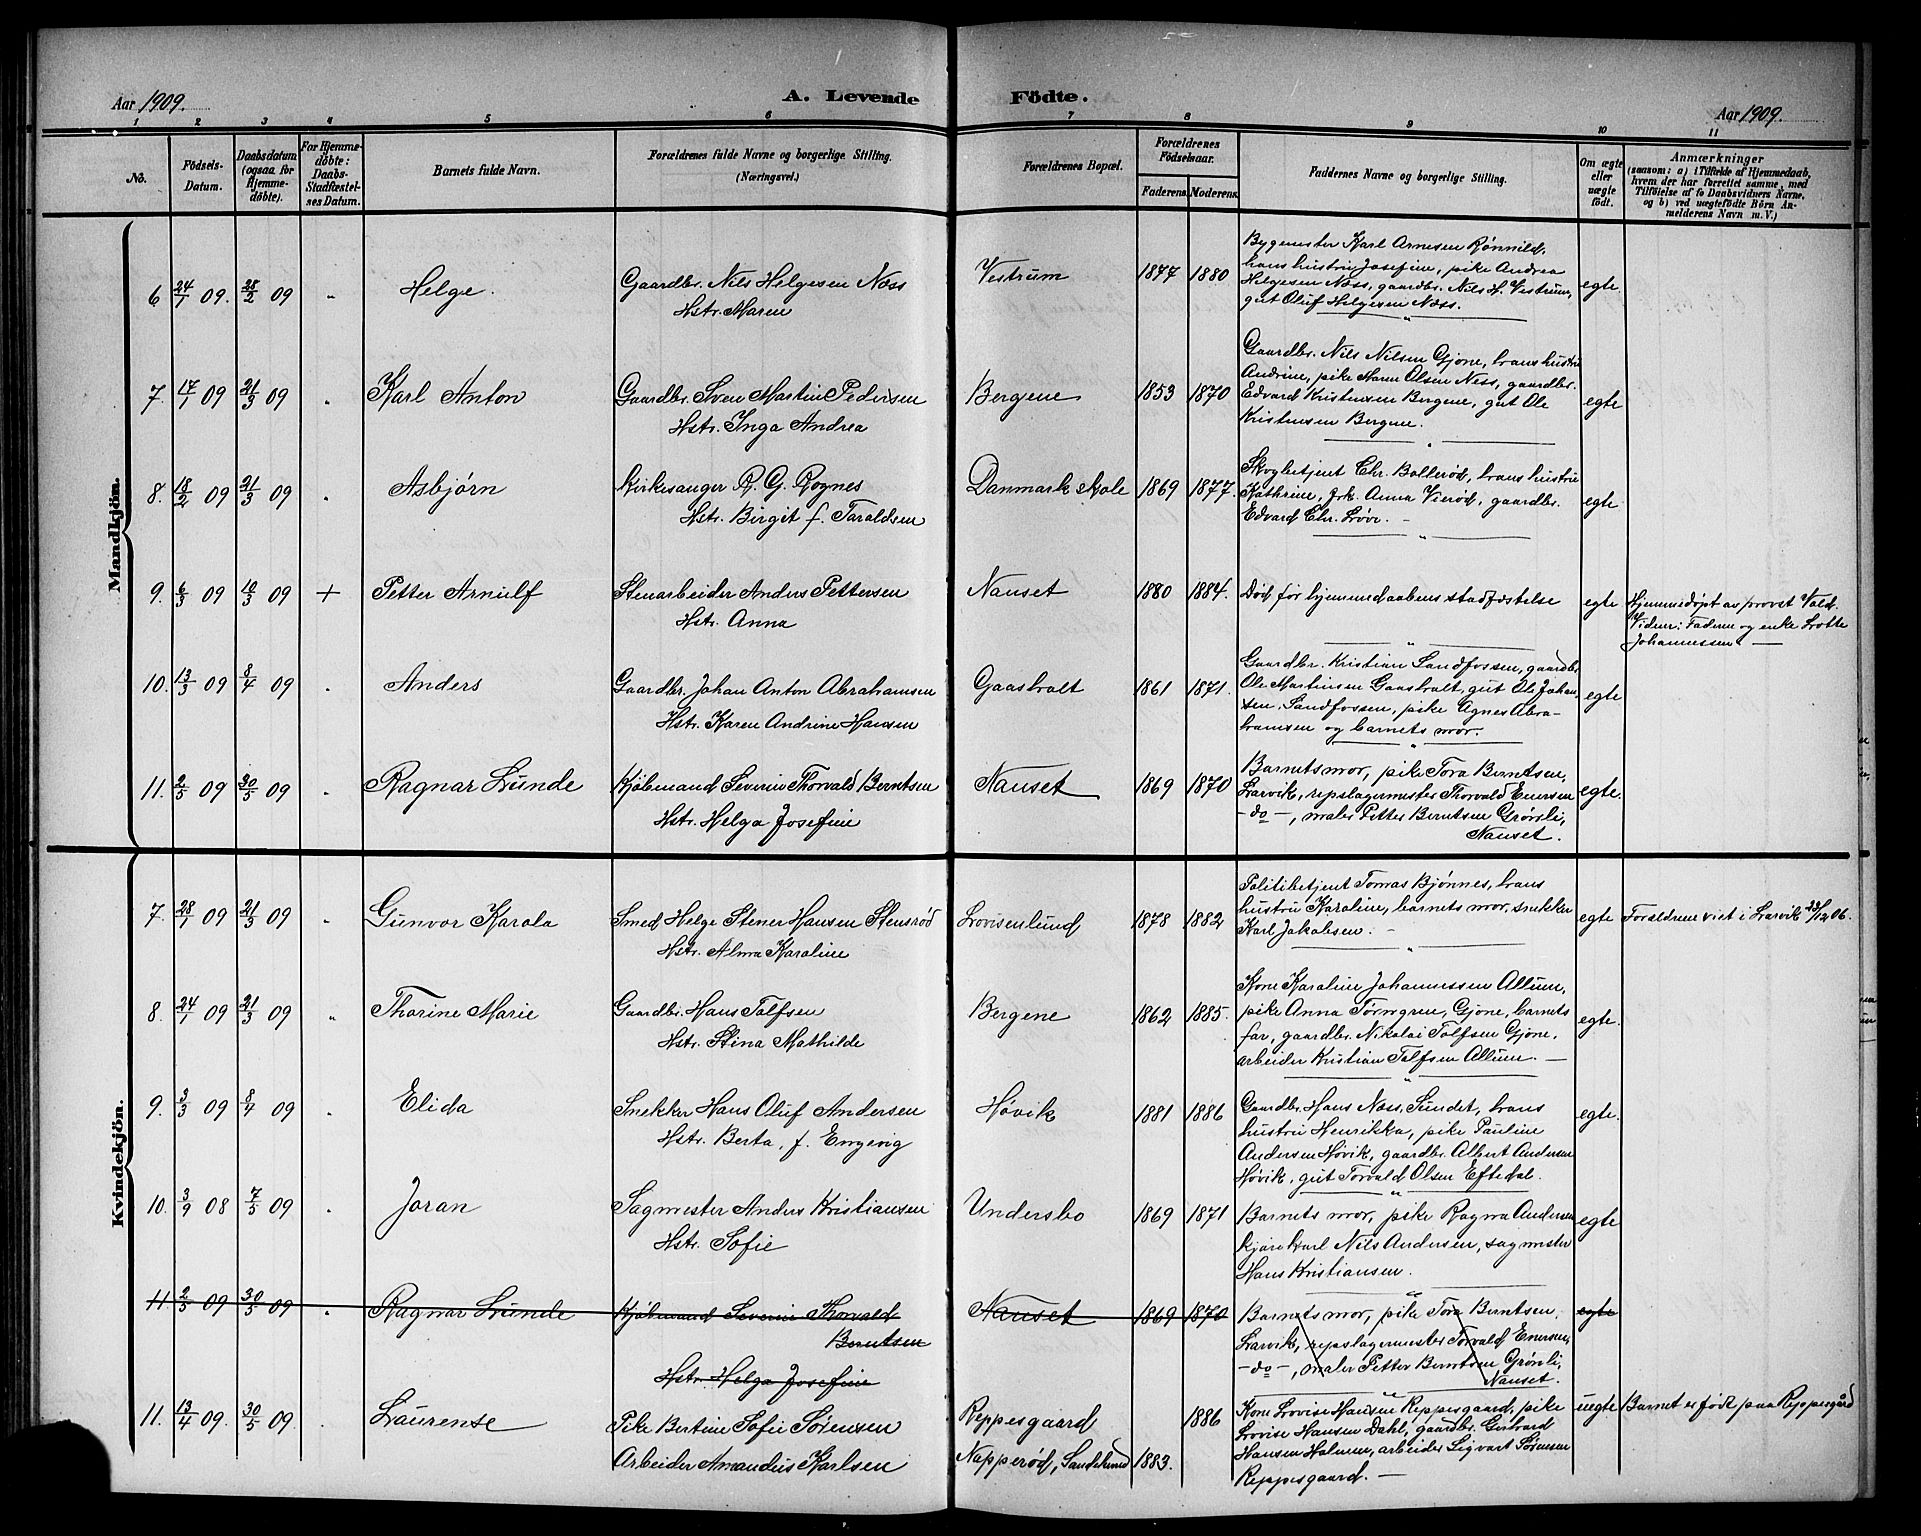 Aar 1909.
A. Levende Födte.
Aar 1909.
1 2 3 4 5 6 7 8 9 10 11
No.
Födsels-
Datum.
Daabsdatum
(ogsaa for
Hjemme-
døbte).
For Hjemme-
døbte:
Daabs-
Stadfæstel-
ses Datum.
Barnets fulde Navn.
Forældrenes fulde Navne og borgerlige Stilling.
(Næringsvei.)
Forældrenes Bopæl.
Forældrenes
Födselsaar.
Faderens. Moderens.
Faddernes Navne og borgerlige Stilling.
Om ægte
eller
uægte
födt.
Anmærkninger
(saasom: a) i Tilfælde af Hjemmedaab,
hvem der har forrettet samme, med
Tilföielse af to Daabsvidners Navne,
og b) ved uægtefödte Börn An-
melderens Navn m. V.)
Mandkjön.
6 24/1 09. 28/2 09 „ Helge. Gaardbr. Nils Helgesen Næss
Hstr. Maren
Vestrum 1847 1880
Bygmester Karl Arnesen Rønnild,
hans hustru Josefine, pike Andrea
Helgesen Næss, gaardbr. Nils H. Vestrum,
gut Oluf Helgesen Næss.
egte
7. 17/1 09 21/3 09 „ Karl Anton Gaardbr. Sven Martin Pedersen
Hstr. Inga Andrea
Bergene 1853 1870
Gaardbr. Nils Nilsen Gjone, hans hustru
Andrine, pike Maren Olsen Næss, gaardbr.
Edvard Kristensen Bergene, gut Ole
Kristensen Bergene.
egte
8. 18/2 09 21/3 09 „ Asbjørn Kirkesanger R. G. Rognes
Hstr. Birgit f. Taraldsen
Danmark skole 1869 1877.
Skogbetjent Chr. Bollerød, hans hustru
Kathrine, frk. Anna Vierød, gaardbr.
Edvard Chr. Løve. -
egte
9. 6/3 09 10/3 09 + Petter Arnulf Stenarbeider Anders Pettersen
Hstr. Anna
Nanset 1880 1884.
Død før hjemmedaabens stadfæstelse
egte
Hjemmedøpt av provst Vald.
Vidner: Faderen og enke Lotte
Johannessen —
10. 13/3 09 8/4 09 „ Anders Gaardbr. Johan Anton Abrahamsen
Hstr. Karen Andrine Hansen
Gaasholt 1861 1871.
Gaardbr. Kristian Sandfossen, gaardbr.
Ole Martinsen Gaasholt, gut Ole Johan-
sen, Sandfossen, pike Agnes Abra-
hamsen og barnets mor.
egte
11. 2/5 09 30/5 09 „ Ragnar Lunde Kjøbmand Severin Thorvald Berntsen
Hstr. Helga Josefine
Nanset 1869 1870
Barnets mor, pike Tora Berntsen,
Larvik, repslagermester Thorvald Enersen
- do -, maler Petter Berntsen Grønli,
Nanset.
egte.
Kvindekjön.
7. 28/1 09 21/3 09 „ Gunvor Karola Smed Helge Stener Hansen Stensrød
Hstr. Alma Karoline
Lovisenlund 1878 1882
Politibetjent Tomas Bjønnes, hans
hustru Karoline, barnets mor, snekker
Karl Jakobsen. -
egte
Forældrene viet i Larvik 23/12 06.
8. 24/1 09 21/3 09 „ Thorine Marie Gaardbr. Hans Tolfsen
Hstr. Stina Mathilde
Bergene 1862 1885.
Kone Karoline Johannessen Allum,
pike Anna Tørngren, Gjone, barnets
far, gaardbr. Nikolai Tolfsen Gjone,
arbeider Kristian Tolfsen Allum. —
egte.
9. 3/3 09 8/4 09 „ Elida Snekker Hans Oluf Andersen
Hstr. Berta, f. Engevig
Høvik 1881 1886
Gaardbr. Hans Næss, Sundet, hans
hustru Henrikka, pike Pauline
Andersen Høvik, gaardbr. Albert Andersen
Høvik, gut Torvald Olsen Eftedal.
egte.
10. 3/9 08 7/5 09 „ Joran Sagmester Anders Kristiansen
Hstr. Sofie
Undersbo 1869 1871
Barnets mor, pike Ragna Andersen
kjørekarl Nils Andersen, sagmester
Hans Kristiansen.
egte
11 2/5 09 30/5 09 „ Ragnar Lunde Kjøbmand Severin Thorvald
Berntsen
Hstr. Helga Josefine
Nanset 1869 1870
Barnets mor, pike Tora Berntsen,
Larvik, repslagermester Torvald Enersen,
- do -, maler Petter Berntsen Grønli,
Nanset.
egte
11. 13/4 09. 30/5 09. „ Laurense Pike Bertine Sofie Sørensen
Arbeider Amandus Karlsen
Reppesgaard 1886
Napperød, Sandeherred 1883.
Kone Lovise Hansen Reppesgaard, pike
Lovise Hansen Dahl, gaardbr. Gerhard
Hansen Holmen, arbeider Sigvart Sørensen
Reppesgaard. —
uegte
Barnet er født paa Reppesgård